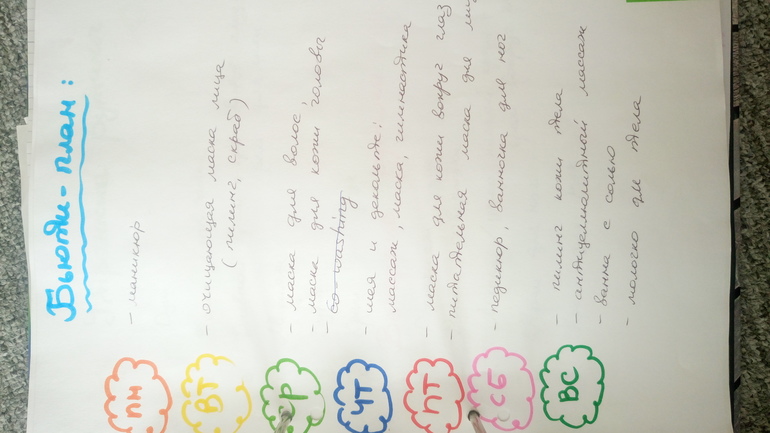 Бьюти-план:
ПН
- маникюр
ВТ
- очищающая маска лица
(пилинг, скраб)
СР
- маска для волос;
- маска для кожи головы
- co-washing
ЧТ
- шея и декольте:
массаж, маска, гимнастика
ПТ
- маска для кожи вокруг глаз
- питательная маска для
СБ
- педикюр, ванночка для ног
ВС
- пилинг кожи тела
- антицеллюлитный массаж
- ванна с солью
- молочко для тела